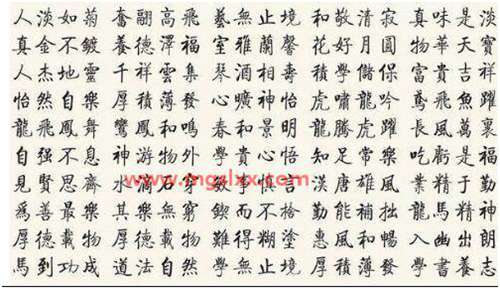 人淡如菊 奮翮高飛 藝無止境 和敬清寂 真味是淡
真金不鍍 養德澤福 室雅蘭馨 花好月圓 物華天寶
人杰地靈 千祥雲集 琴酒相壽 積學儲保 富貴吉祥
怡然自樂 厚積薄發 心曠神怡 虎嘯龍吟 鳶飛魚躍
龍飛鳳舞 鸞鳳和鳴 春和景明 龍騰虎躍 長風萬裏
自强不息 神游物外 學貴心悟 知足常樂 吃虧是福
見賢思齊 水滴石穿 漢唐雄風 業精于勤
爲善最樂 其樂無窮 鍥而不捨 勤能補拙 龍馬精神
厚德載物 厚德載物 難得糊塗 惠風和暢 入幽出朗
馬到功成 道法自然 學無止境 厚積薄發 學書養志